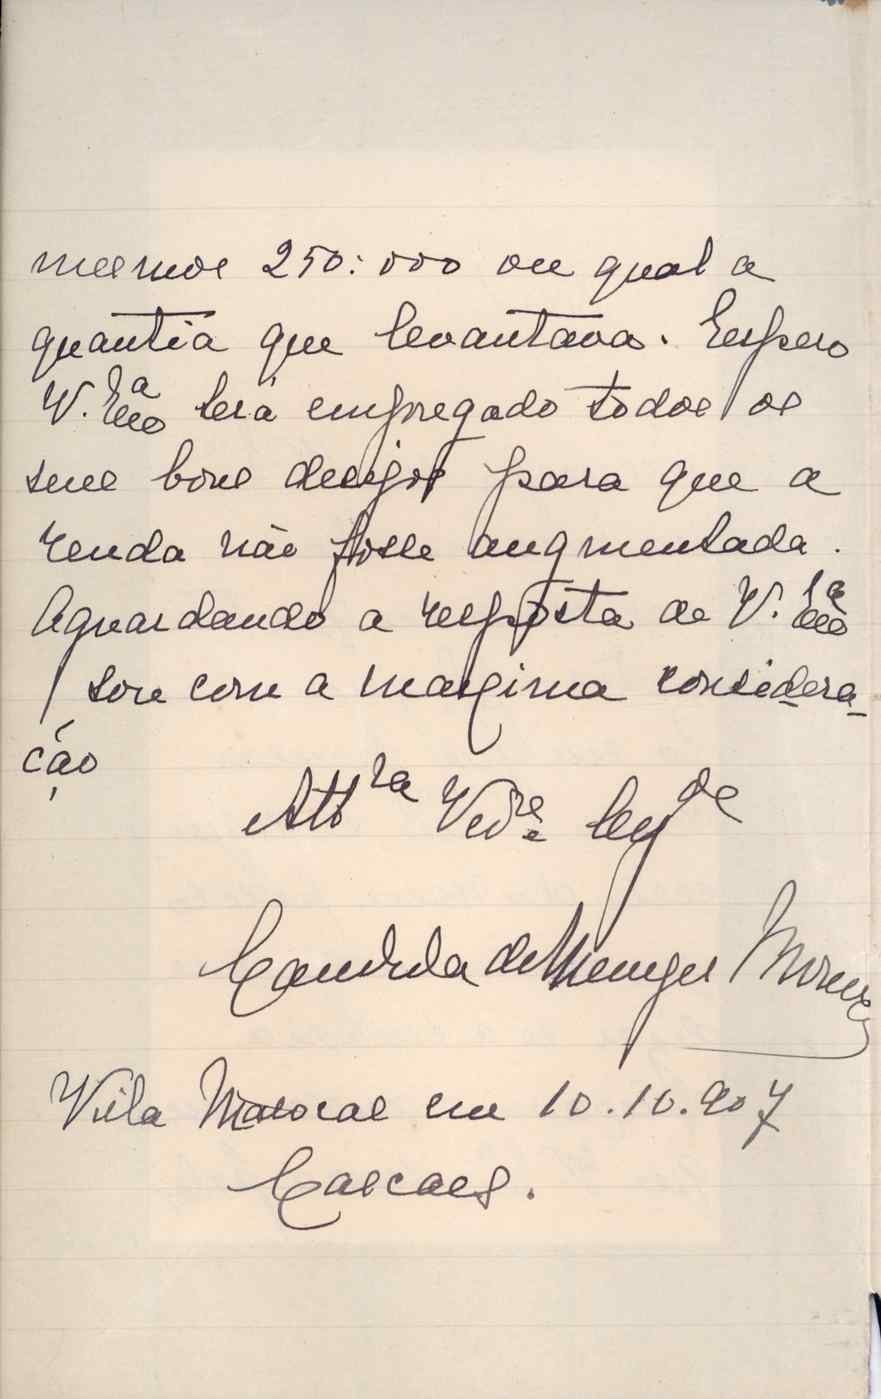 mesmos 250:000 ou qual a
quantia que levantava. Espero
V. Ex.ª terá empregado todos os
seus bons desejos para que a
renda não fosse augmentada.
Aguardando a resposta de V. Ex.ª
sou com a maxima considera-
ção
Att.ra Ven.re
Candida de Menezes
Villa em 10.10.907
Cascaes.